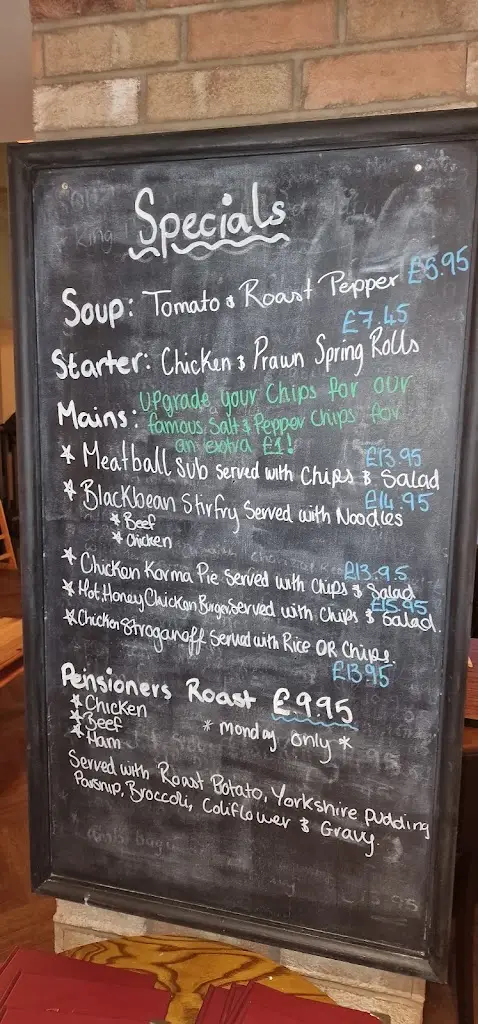 Specials
Soup: Tomato & Roast Pepper £6.95
£7.45
Starter: Chicken & Prawn Spring Rolls
Mains: Upgrade your Chips for our
famous Salt & Pepper Chips for
an extra £1!
£13.95
* Meatball Sub served with Chips & Salad
£14.95
* Blackbean Stirfry Served with Noodles
* Beef
* Chicken
£13.95
* Chicken Korma Pie Served with Chips & Salad
£15.95
* Hot Honey Chicken Burger Served with Chips & Salad.
* Chicken Stroganoff Served with Rice OR Chips.
£13.95
Pensioners Roast £9.95
* Chicken
* Beef
* Ham
* monday only *
Served with Roast Potato, Yorkshire pudding
Parsnip, Broccoli, Coliflower & Gravy.